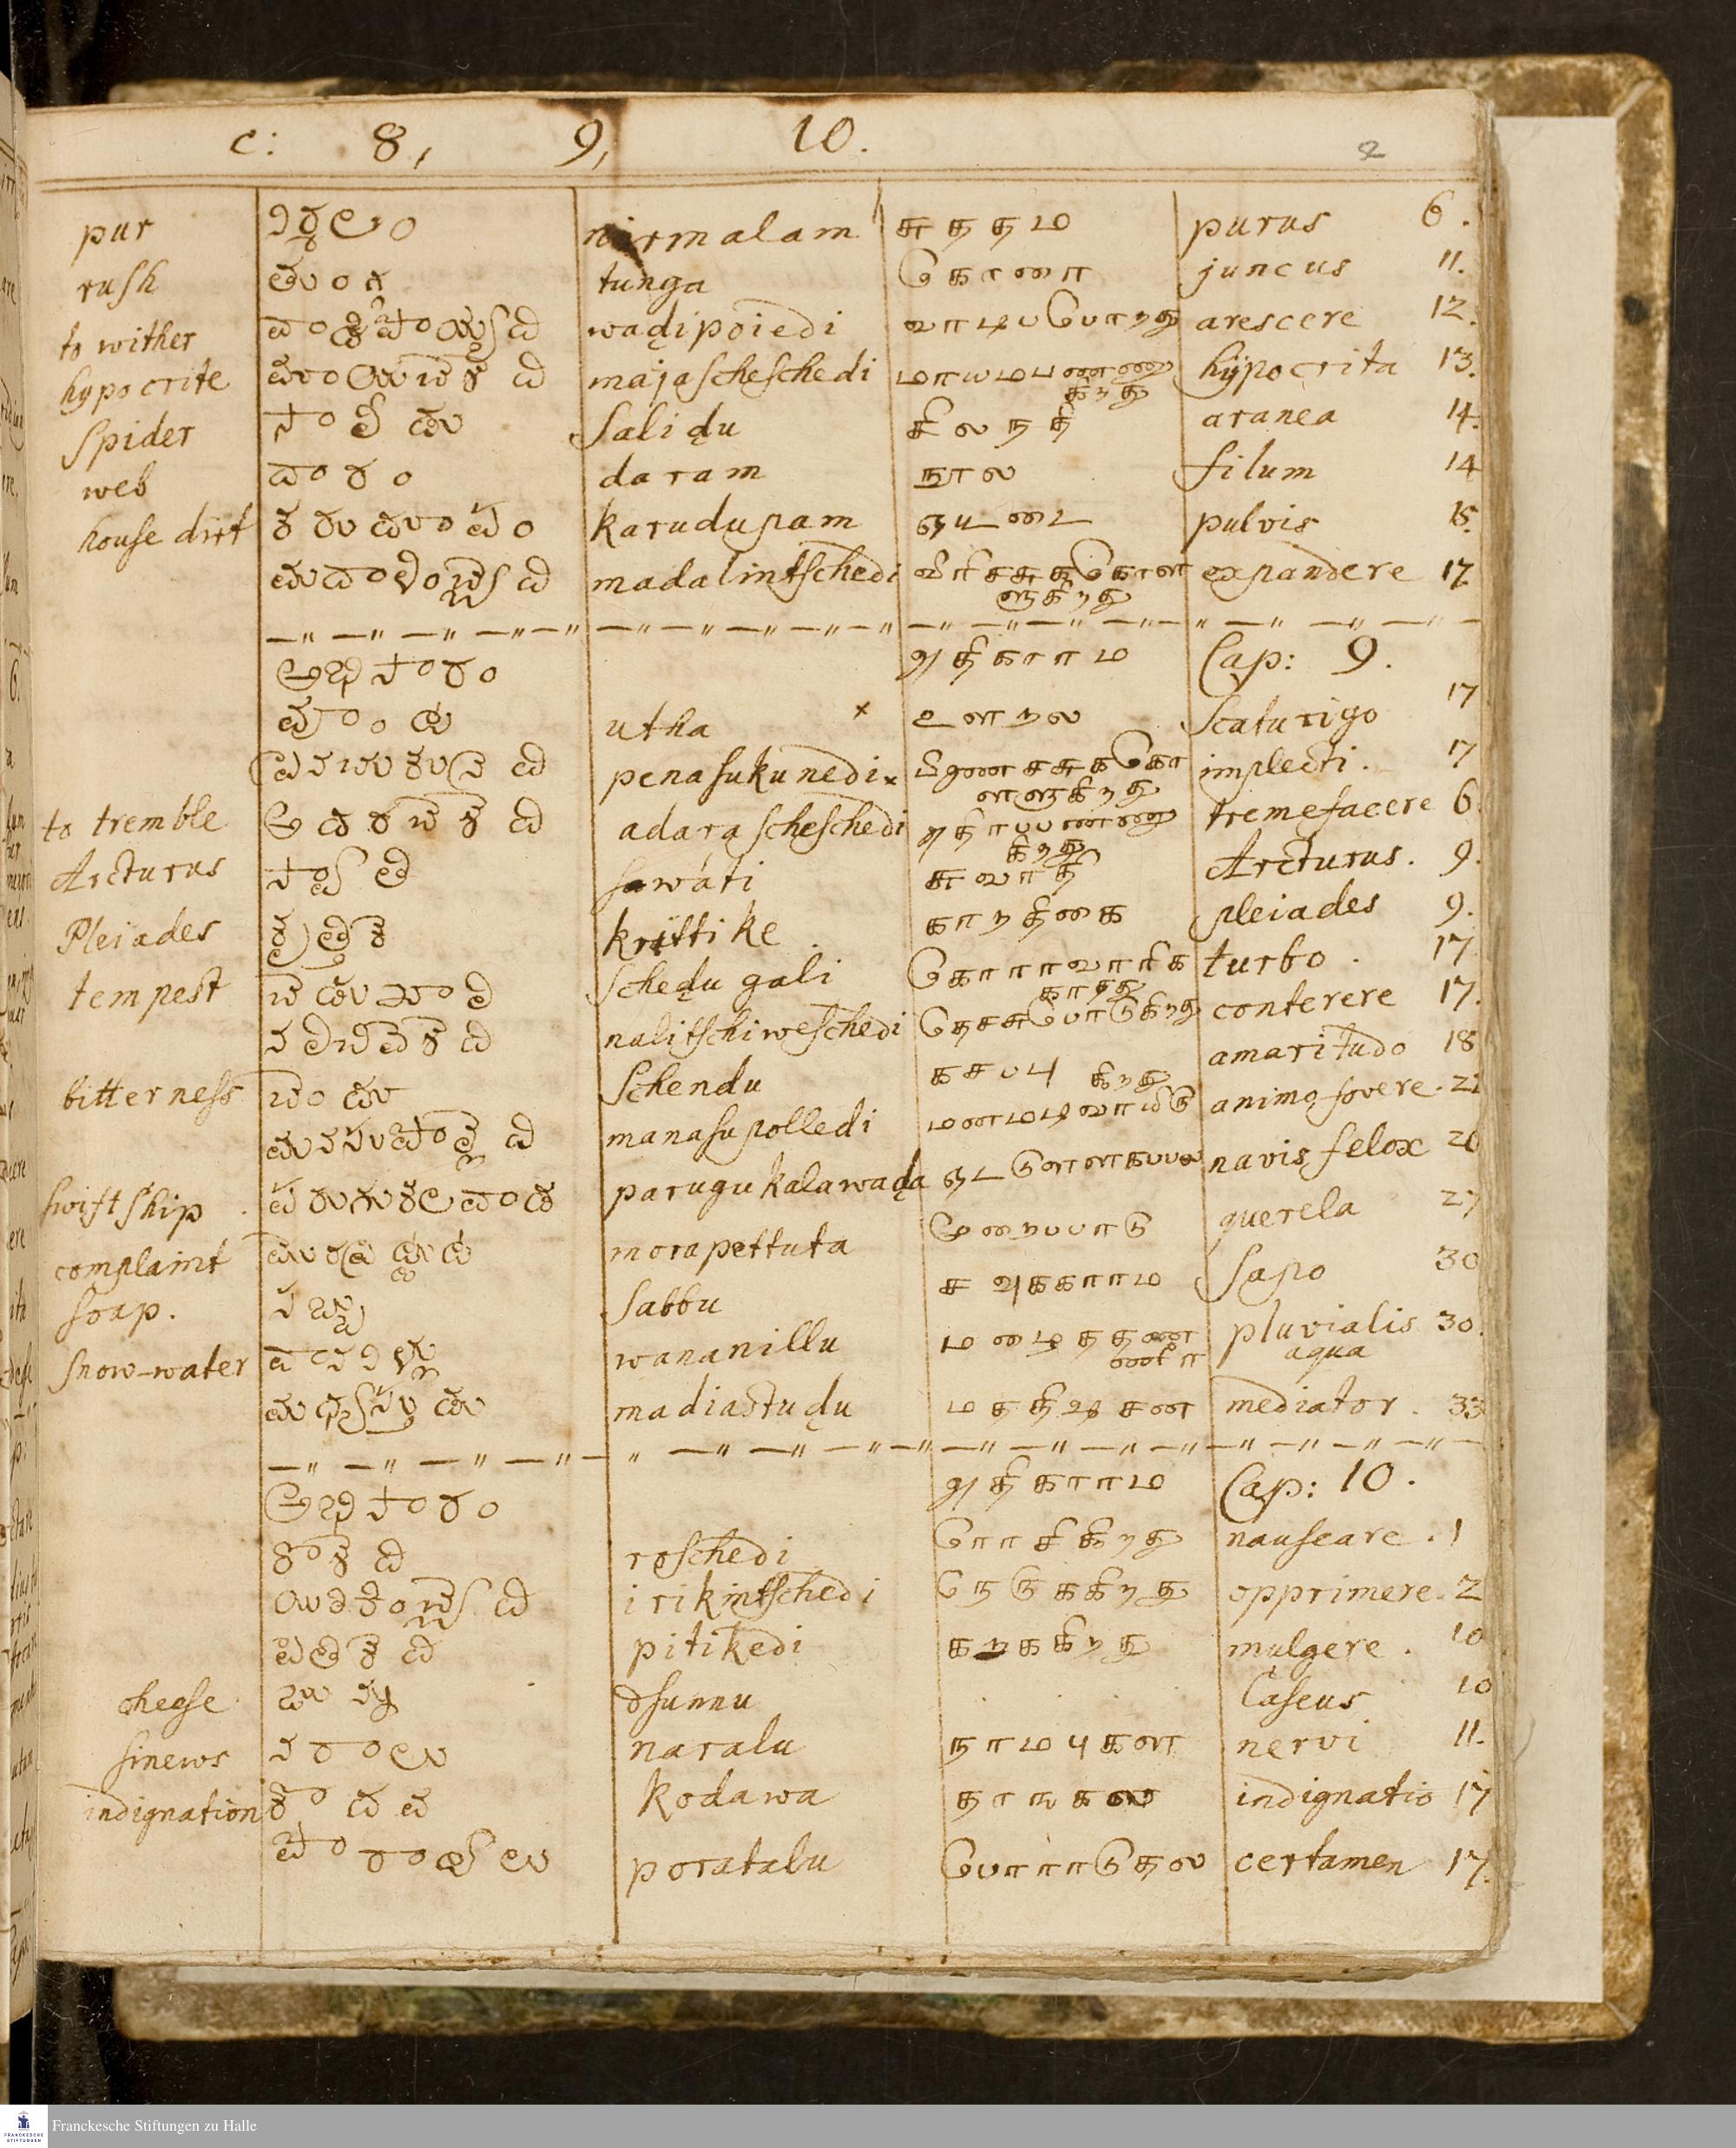 c: 8, 9, 10.
2
pur నిర్మలం nirmalam சுததம purus 6.
rush తుంగ tunga கொணா juncus 11.
to wither వాడిపొయ్యెడి wadipoiedi வாடிபபொறது arescere 12.
hypocrite మాయచేశెడి majascheschedi மாயமபணணு hypocrita 13.
கிறது
Spider సాలిడు Salidu சிலநதி aranea 14.
web దారం daram நூல filum 14
house dirt karudupam pulvis 15.
madalintschedi expandere 17
ளுகிறது
అధికారం அதிகாரம Cap: 9.
ఊంట utha × உளறல Scaturigo 17
పెనసుకునెడి penasukunedi × implecti. 17
ளளுகிறது
to tremble అదరచేశెడి adarascheschedi அதிரபபணணு tremefacere 6.
கிறது
Arcturus స్వాతి sawáti சுவாதி Arcturus. 9.
Pleiades కృత్తికె krittike காறதிகை pleiades 9.
tempest చెడుగాలి schedu gali turbo. 17
காதது
నలిచివేశెడి nalitschiweschedi conterere 17.
bitterness చేందు Schendu கசபபு amaritudo 18
கிறது
manasupolledi animo fovere. 22
swift ship పరుగుకలవాడ parugukalawada navis felox 26
complaint మొరపెట్టుట morapettuta முறைபபாடு querela 27
soap. సబ్బు sabbu சவுககாரம sapo 30
snow-water వాననిల్లు wananillu மழைததண pluvialis 30.
ணீா aqua
మధ్యస్తుడు madiastudu மததியசன mediator. 33
అధికారం அதிகாரம Cap: 10.
రోశెడి roschedi nauseare. 1
యిరికించ్చెడి irikintschedi நெருககிறது opprimere. 2
పితికెడి pitikedi கறககிறது mulgere. 10
cheese జున్ను dsunnu Caseus 10
sinews నరాలు naralu நரமபுகள nervi 11.
indignation కోదవ kodawa தாஙகல indignatio 17
పోరాటాలు poratalu போராடுதல certamen 17.
Franckesche Stiftungen zu Halle
FRANCKESCHE STIFTUNGEN